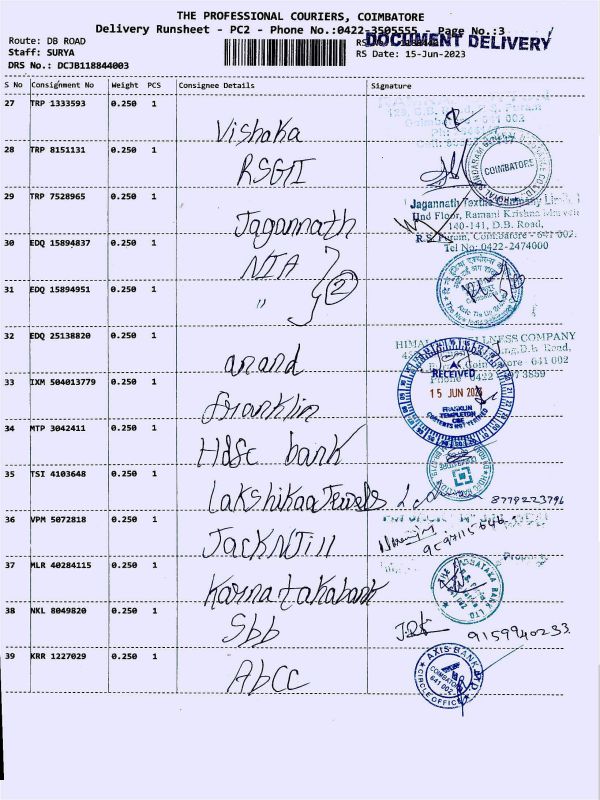 THE PROFESSIONAL COURIERS, COIMBATORE
Delivery Runsheet - PC2 - Phone No.:0422-3505555 Page No.:3
Route: DB ROAD
DOCUMENT DELIVERY
Staff: SURYA
RS Date: 15-Jun-2023
DRS No.: DCJB118844003
S No Consignment No Weight PCS Consignee Details Signature
27 TRP 1333593 0.250 1
Vishaka
28 TRP 8151131 0.250 1
COIMBATORE
RSGII
29 TRP 7528965 0.250 1
Jagannath Textile Company Limited
IInd Floor, Ramani Krishna
140-141, D.B. Road,
Jagannath
R.S. Puram, Coimbatore - 641 002.
Tel No: 0422-2474000
30 EDQ 15894837 0.250 1
NIA
31 EDQ 15894951 0.250 1
" 2
32 EDQ 25138820 0.250 1
HIMALAYA WELLNESS COMPANY
D.B. Road,
641 002
anand
RECEIVED
33 IXM 504013779 0.250 1
15 JUN 2023
FRANKLIN
TEMPLETON
CBE
CONTENTS NOT VERIFIED
franklin
34 MTP 3042411 0.250 1
Hdfc bank
35 TSI 4103648 0.250 1
Lakshikaa Jewels 8779223796
36 VPM 5072818 0.250 1
JackNJill
37 MLR 40284115 0.250 1
THE KARNATAKA BANK LTD
Karnatakabank
38 NKL 8049820 0.250 1
Sbb
9159940233
39 KRR 1227029 0.250 1
AXIS BANK LTD.
COIMBATORE
641 002
CIRCLE OFFICE
AbCC